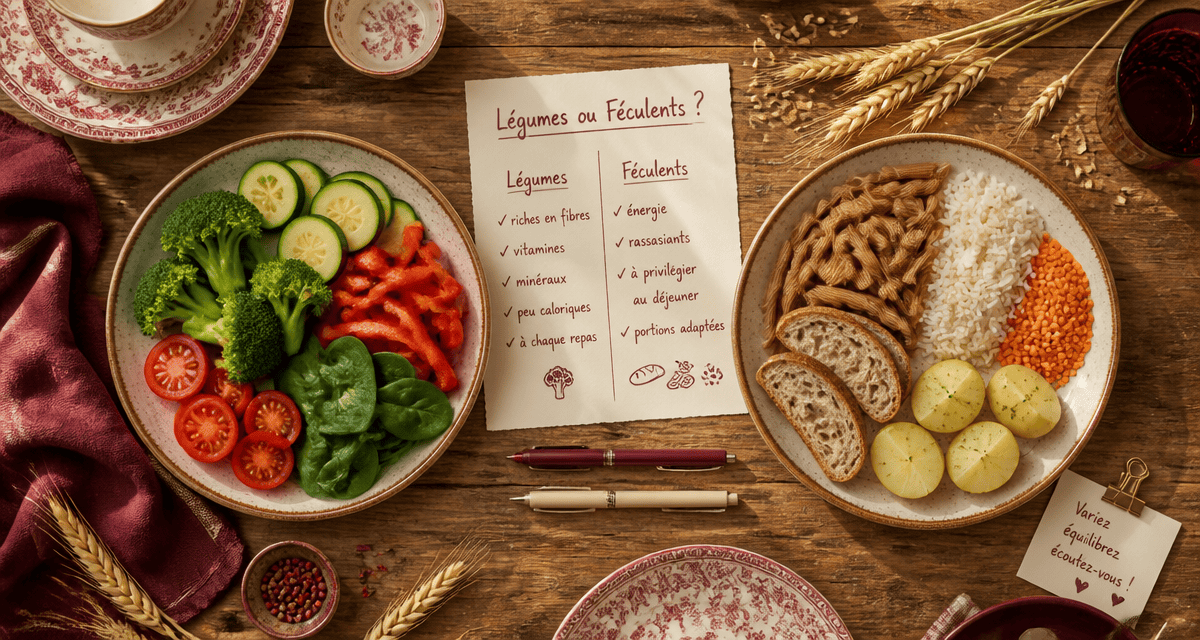 Légumes ou Féculents ?
Légumes
✓ riches en fibres
✓ vitamines
✓ minéraux
✓ peu caloriques
✓ à chaque repas
Féculents
✓ énergie
✓ rassasiants
✓ à privilégier
au déjeuner
✓ portions adaptées
Variez
équilibrez
écoutez-vous !